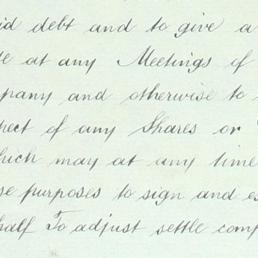 id debt and to give a
at any Meetings of
pany and otherwise to
pect of any Shares or
hich may at any time
se purposes to sign and
half To adjust settle comp